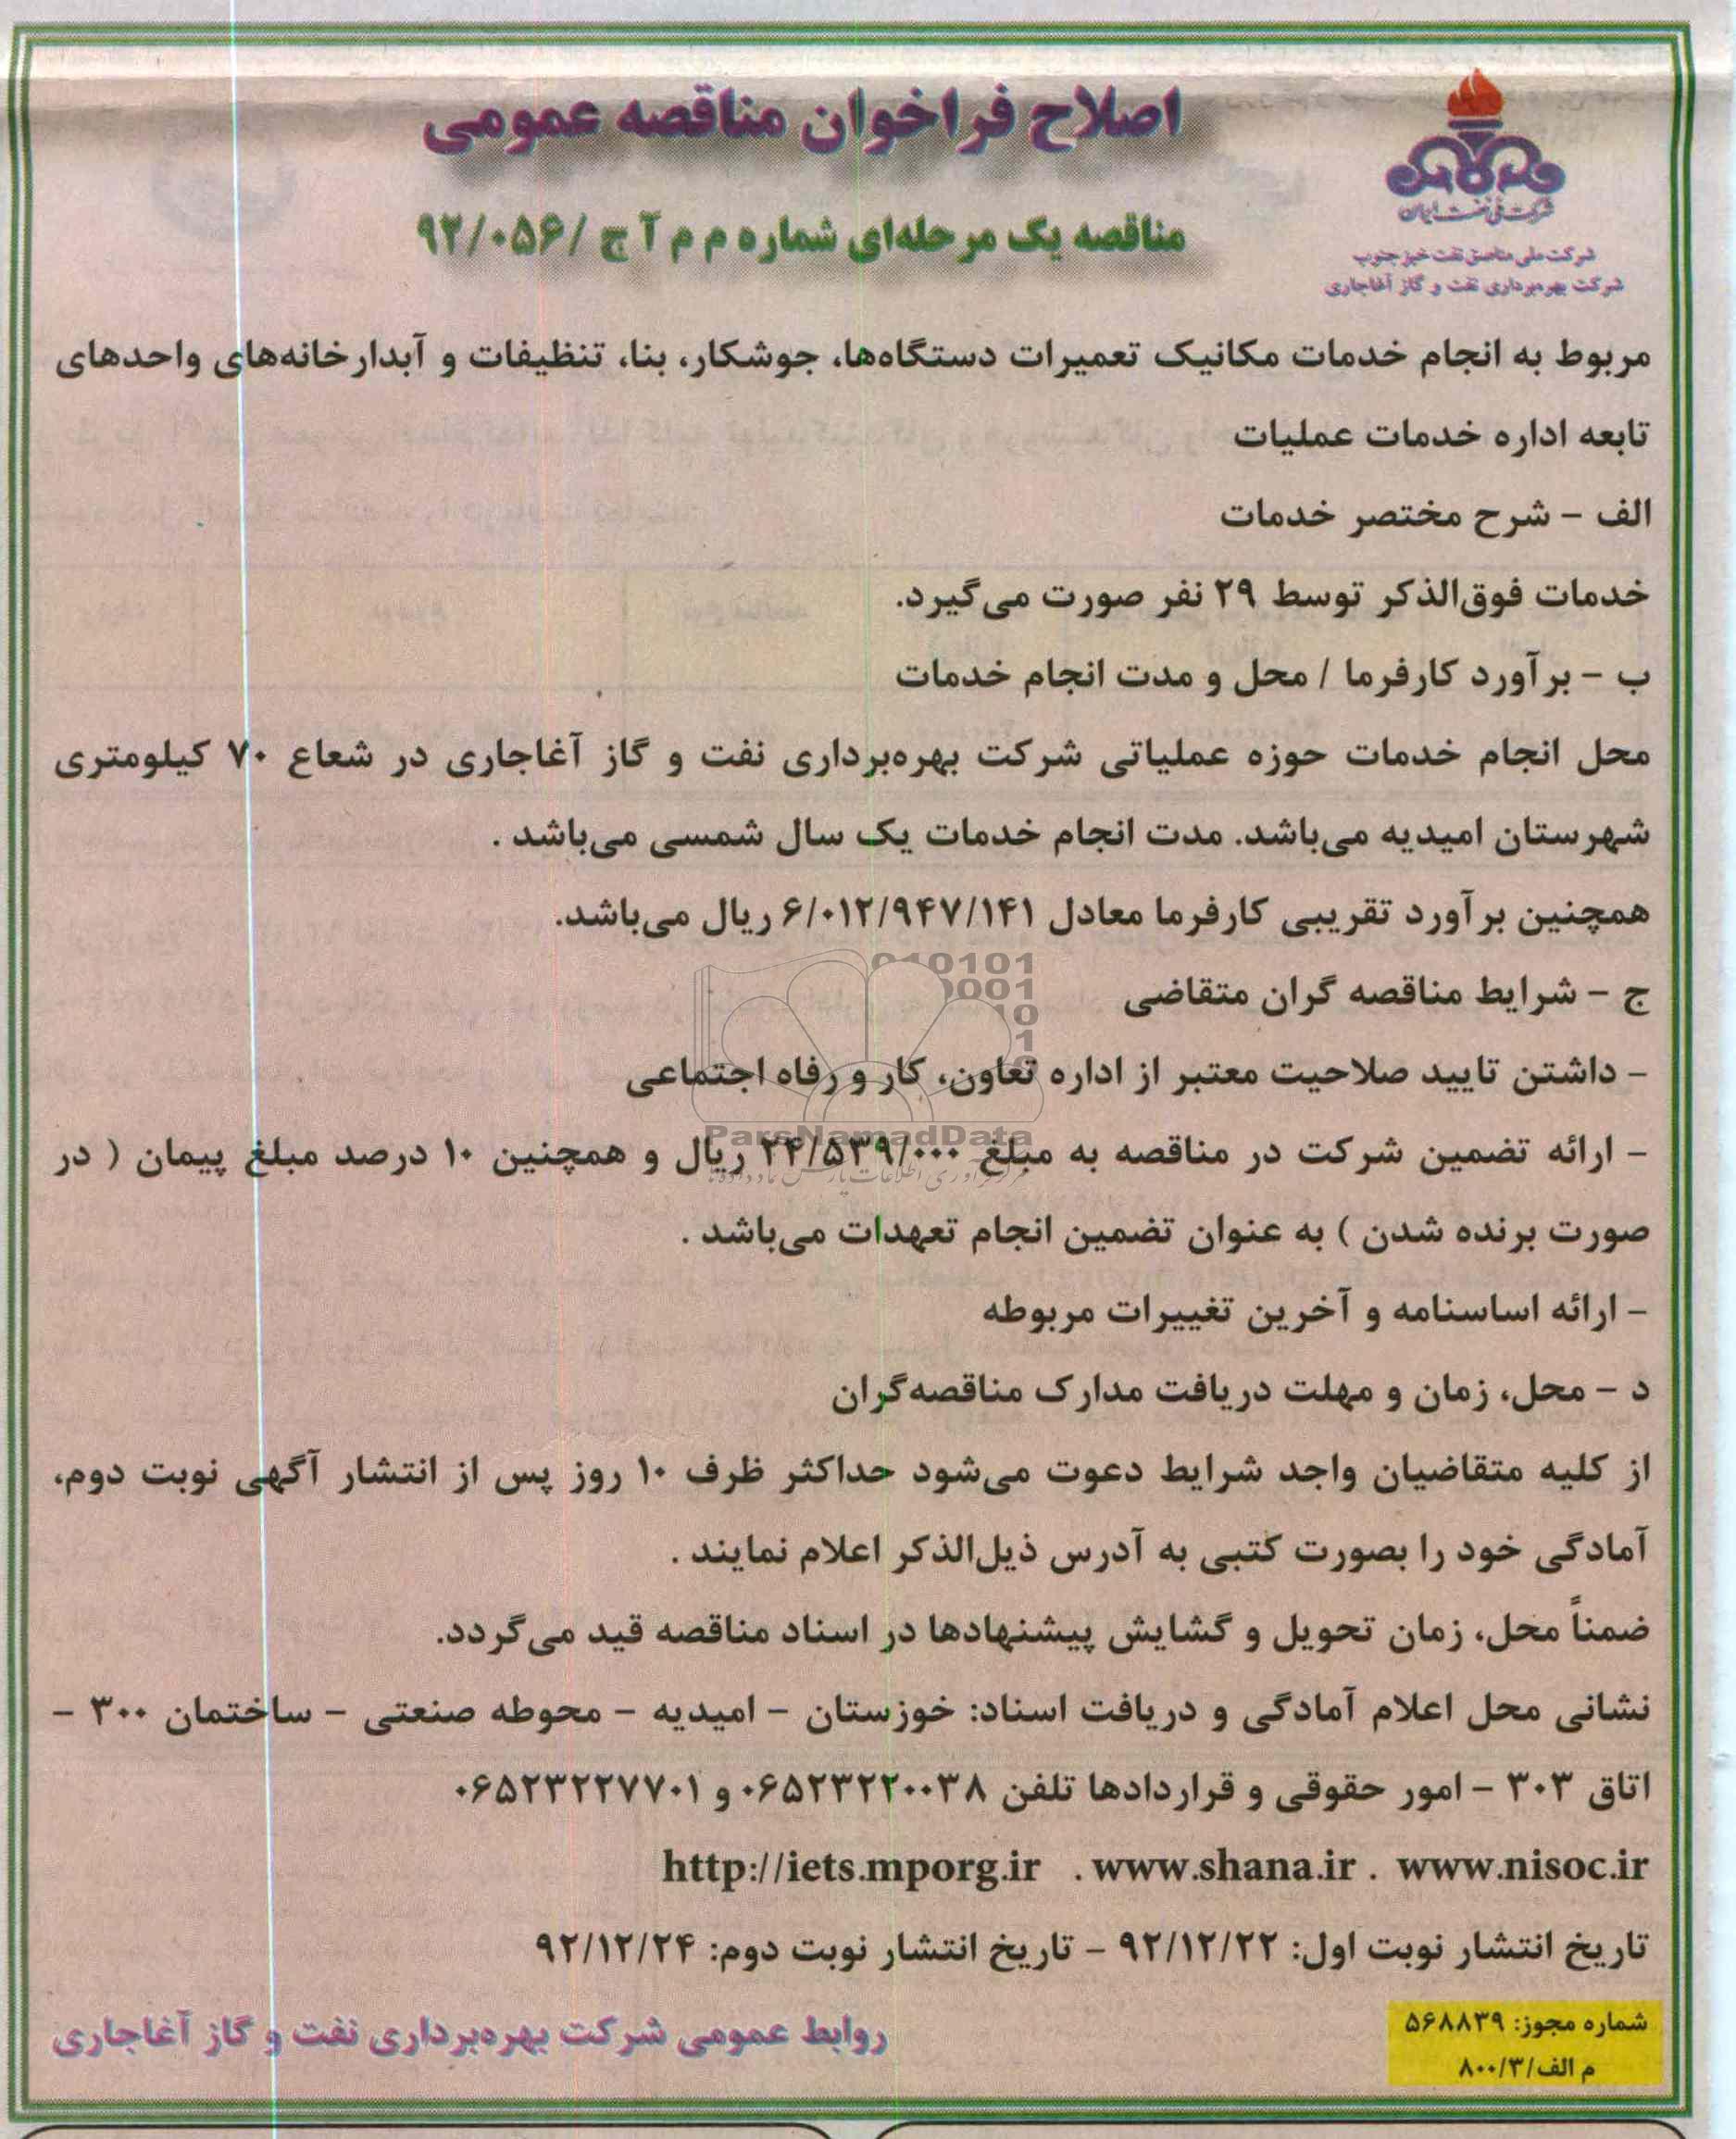 اصلاح فراخوان مناقصه عمومی
مناقصه یک مرحله‌ای شماره م م آ ج /۹۲/۰۵۶
شرکت ملی نفت ایران
شرکت ملی مناطق نفت خیز جنوب
شرکت بهره‌برداری نفت و گاز آغاجاری
مربوط به انجام خدمات مکانیک تعمیرات دستگاه‌ها، جوشکار، بنا، تنظیفات و آبدارخانه‌های واحدهای
تابعه اداره خدمات عملیات
الف – شرح مختصر خدمات
خدمات فوق‌الذکر توسط ۲۹ نفر صورت می‌گیرد.
ب – برآورد کارفرما / محل و مدت انجام خدمات
محل انجام خدمات حوزه عملیاتی شرکت بهره‌برداری نفت و گاز آغاجاری در شعاع ۷۰ کیلومتری
شهرستان امیدیه می‌باشد. مدت انجام خدمات یک سال شمسی می‌باشد .
همچنین برآورد تقریبی کارفرما معادل ۶/۰۱۲/۹۴۷/۱۴۱ ریال می‌باشد.
ج – شرایط مناقصه گران متقاضی
– داشتن تایید صلاحیت معتبر از اداره تعاون، کار و رفاه اجتماعی
– ارائه تضمین شرکت در مناقصه به مبلغ ۲۴/۵۳۹/۰۰۰ ریال و همچنین ۱۰ درصد مبلغ پیمان ( در
صورت برنده شدن ) به عنوان تضمین انجام تعهدات می‌باشد .
– ارائه اساسنامه و آخرین تغییرات مربوطه
د – محل، زمان و مهلت دریافت مدارک مناقصه‌گران
از کلیه متقاضیان واجد شرایط دعوت می‌شود حداکثر ظرف ۱۰ روز پس از انتشار آگهی نوبت دوم،
آمادگی خود را بصورت کتبی به آدرس ذیل‌الذکر اعلام نمایند .
ضمناً محل، زمان تحویل و گشایش پیشنهادها در اسناد مناقصه قید می‌گردد.
نشانی محل اعلام آمادگی و دریافت اسناد: خوزستان – امیدیه – محوطه صنعتی – ساختمان ۳۰۰ –
اتاق ۳۰۳ – امور حقوقی و قراردادها تلفن ۰۶۵۲۳۲۲۰۰۳۸ و ۰۶۵۲۳۲۲۷۷۰۱
http://iets.mporg.ir . www.shana.ir . www.nisoc.ir
تاریخ انتشار نوبت اول: ۹۲/۱۲/۲۲ – تاریخ انتشار نوبت دوم: ۹۲/۱۲/۲۴
شماره مجوز: ۵۶۸۸۳۹
م الف/۸۰۰/۳
روابط عمومی شرکت بهره‌برداری نفت و گاز آغاجاری
ParsNamadData